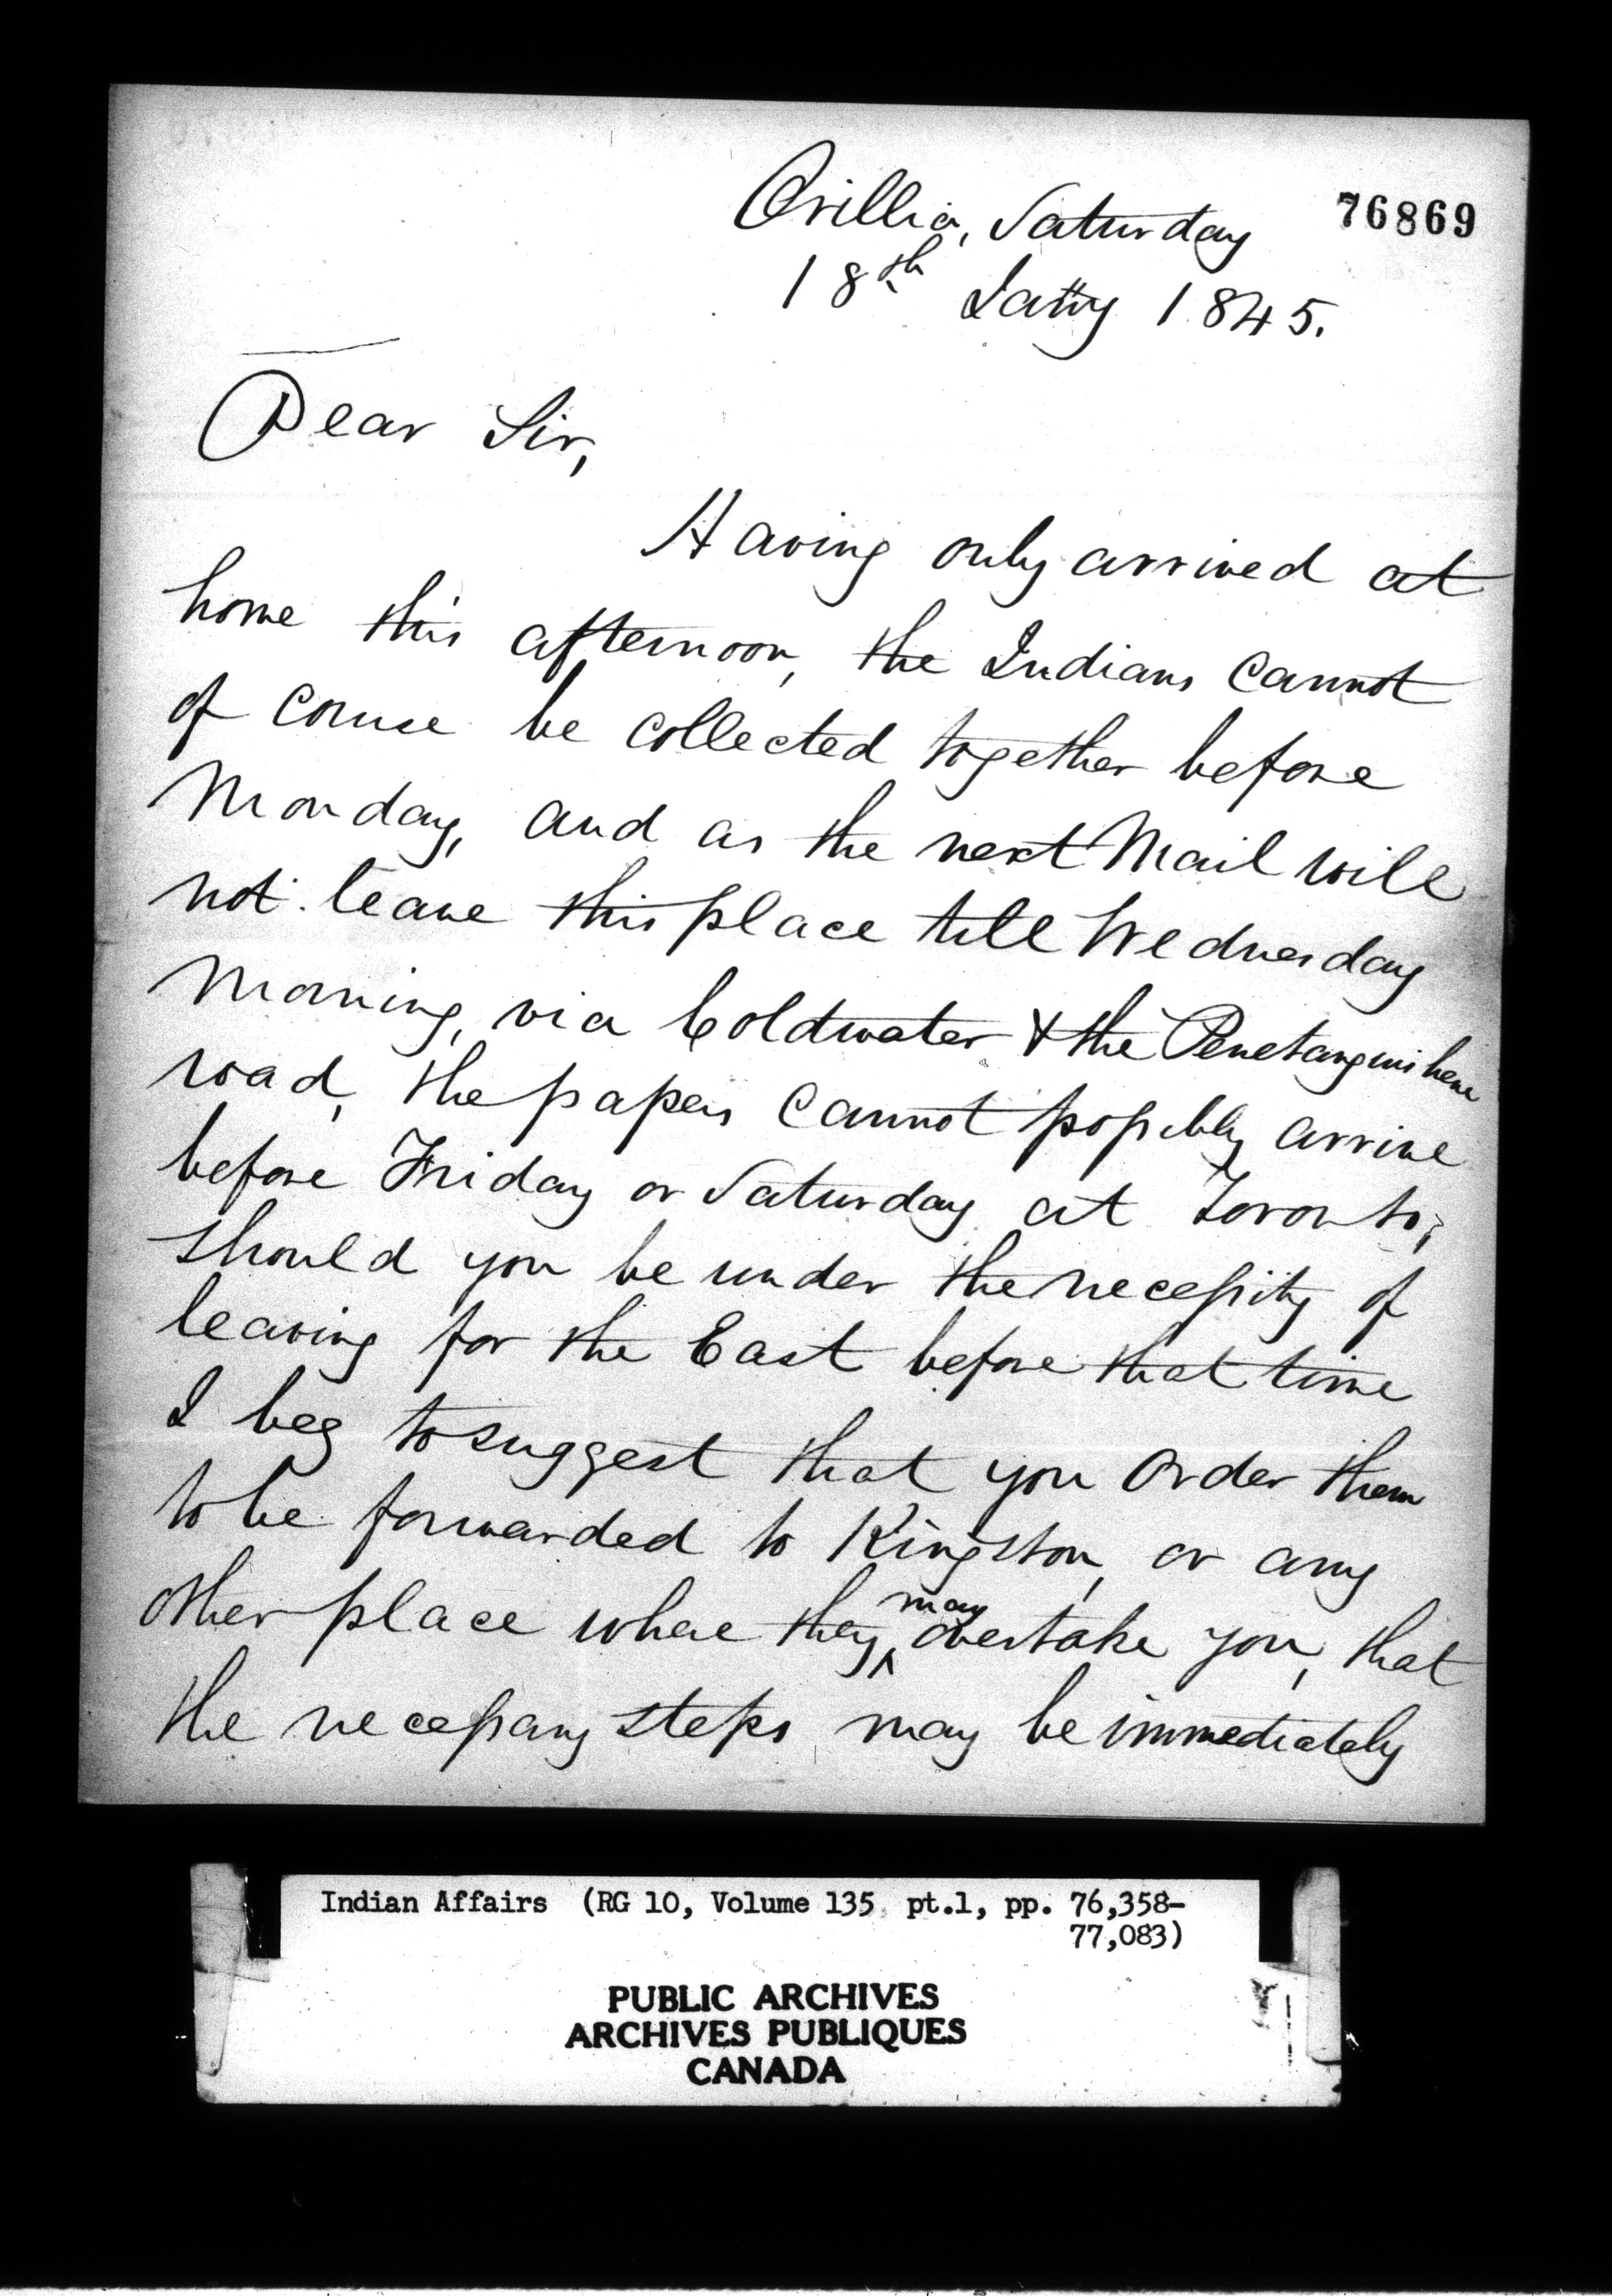 76869
Orillia, Saturday
18th Jany 1845.
Dear Sir,
Having only arrived at
home this afternoon, the Indians cannot
of course be collected together before
Monday, and as the next Mail will
not leave this place till Wednesday
Morning, via Coldwater & the Penetanguishene
road, the papers cannot possibly arrive
before Friday or Saturday at Toronto;
should you be under the necessity of
leaving for the East before that time
I beg to suggest that you order them
to be forwarded to Kingston, or any
other place where they may overtake you, that
the necessary steps may be immediately
Indian Affairs (RG 10, Volume 135 pt.1, pp. 76,358-
77,083)
PUBLIC ARCHIVES
ARCHIVES PUBLIQUES
CANADA